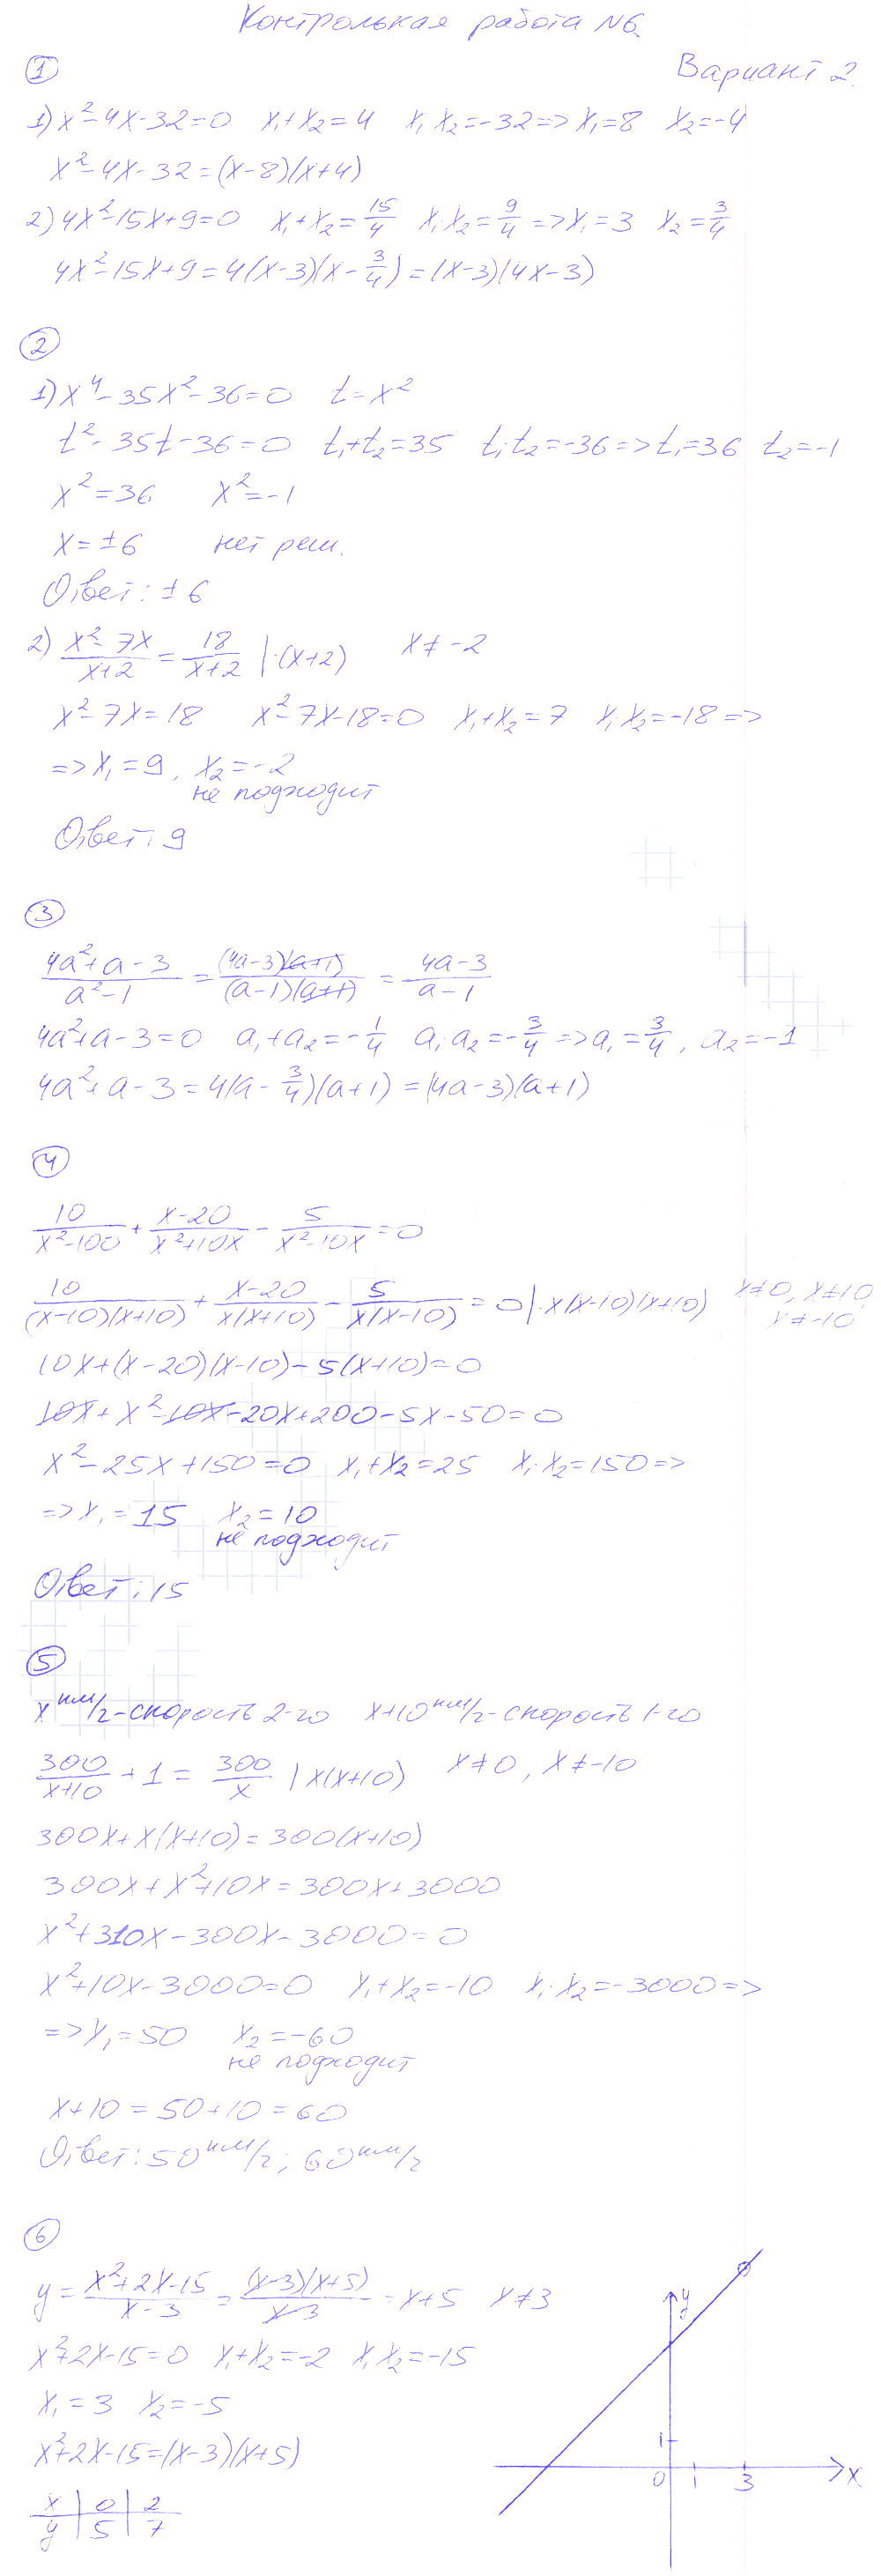 Контрольная работа №6.
Вариант 2.
①
1) x²-4x-32=0 x₁+x₂=4 x₁·x₂=-32=>x₁=8 x₂=-4
x²-4x-32=(x-8)(x+4)
2) 4x²-15x+9=0 x₁+x₂=15/4 x₁·x₂=9/4=>x₁=3 x₂=3/4
4x²-15x+9=4(x-3)(x-3/4)=(x-3)(4x-3)
②
1) x⁴-35x²-36=0 t=x²
t²-35t-36=0 t₁+t₂=35 t₁·t₂=-36=>t₁=36 t₂=-1
x²=36 x²=-1
x=±6 нет реш.
Ответ: ±6
2) (x²-7x)/(x+2)=18/(x+2) |·(x+2) x≠-2
x²-7x=18 x²-7x-18=0 x₁+x₂=7 x₁·x₂=-18=>
=>x₁=9, x₂=-2
не подходит
Ответ: 9
③
(4a²+a-3)/(a²-1)=((4a-3)(a+1))/((a-1)(a+1))=(4a-3)/(a-1)
4a²+a-3=0 a₁+a₂=-1/4 a₁·a₂=-3/4=>a₁=3/4, a₂=-1
4a²+a-3=4(a-3/4)(a+1)=(4a-3)(a+1)
④
10/(x²-100)+(x-20)/(x²+10x)-5/(x²-10x)=0
10/((x-10)(x+10))+(x-20)/(x(x+10))-5/(x(x-10))=0 |·x(x-10)(x+10) x≠0, x≠10,
x≠-10
10x+(x-20)(x-10)-5(x+10)=0
10x+x²-10x-20x+200-5x-50=0
x²-25x+150=0 x₁+x₂=25 x₁·x₂=150=>
=>x₁=15 x₂=10
не подходит
Ответ: 15
⑤
x км/г-скорость 2-го x+10 км/г-скорость 1-го
300/(x+10)+1=300/x | x(x+10) x≠0, x≠-10
300x+x(x+10)=300(x+10)
300x+x²+10x=300x+3000
x²+310x-300x-3000=0
x²+10x-3000=0 x₁+x₂=-10 x₁·x₂=-3000=>
=>x₁=50 x₂=-60
не подходит
x+10=50+10=60
Ответ: 50 км/г; 60 км/г
⑥
y=(x²+2x-15)/(x-3)=((x-3)(x+5))/(x-3)=x+5 x≠3
x²+2x-15=0 x₁+x₂=-2 x₁·x₂=-15
x₁=3 x₂=-5
x²+2x-15=(x-3)(x+5)
x | 0 | 2
y | 5 | 7
y
1
0 1 3 x